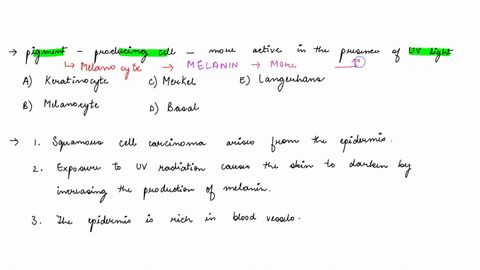 → pigment - producing cell - more active in the presence of UV light
↳ Melanocyte → MELANIN → More
A) Keratinocyte C) Merkel E) Langerhans
B) Melanocyte D) Basal
→ 1. Squamous cell carcinoma arises from the epidermis.
2. Exposure to UV radiation causes the skin to darken by
increasing the production of melanin.
3. The epidermis is rich in blood vessels.